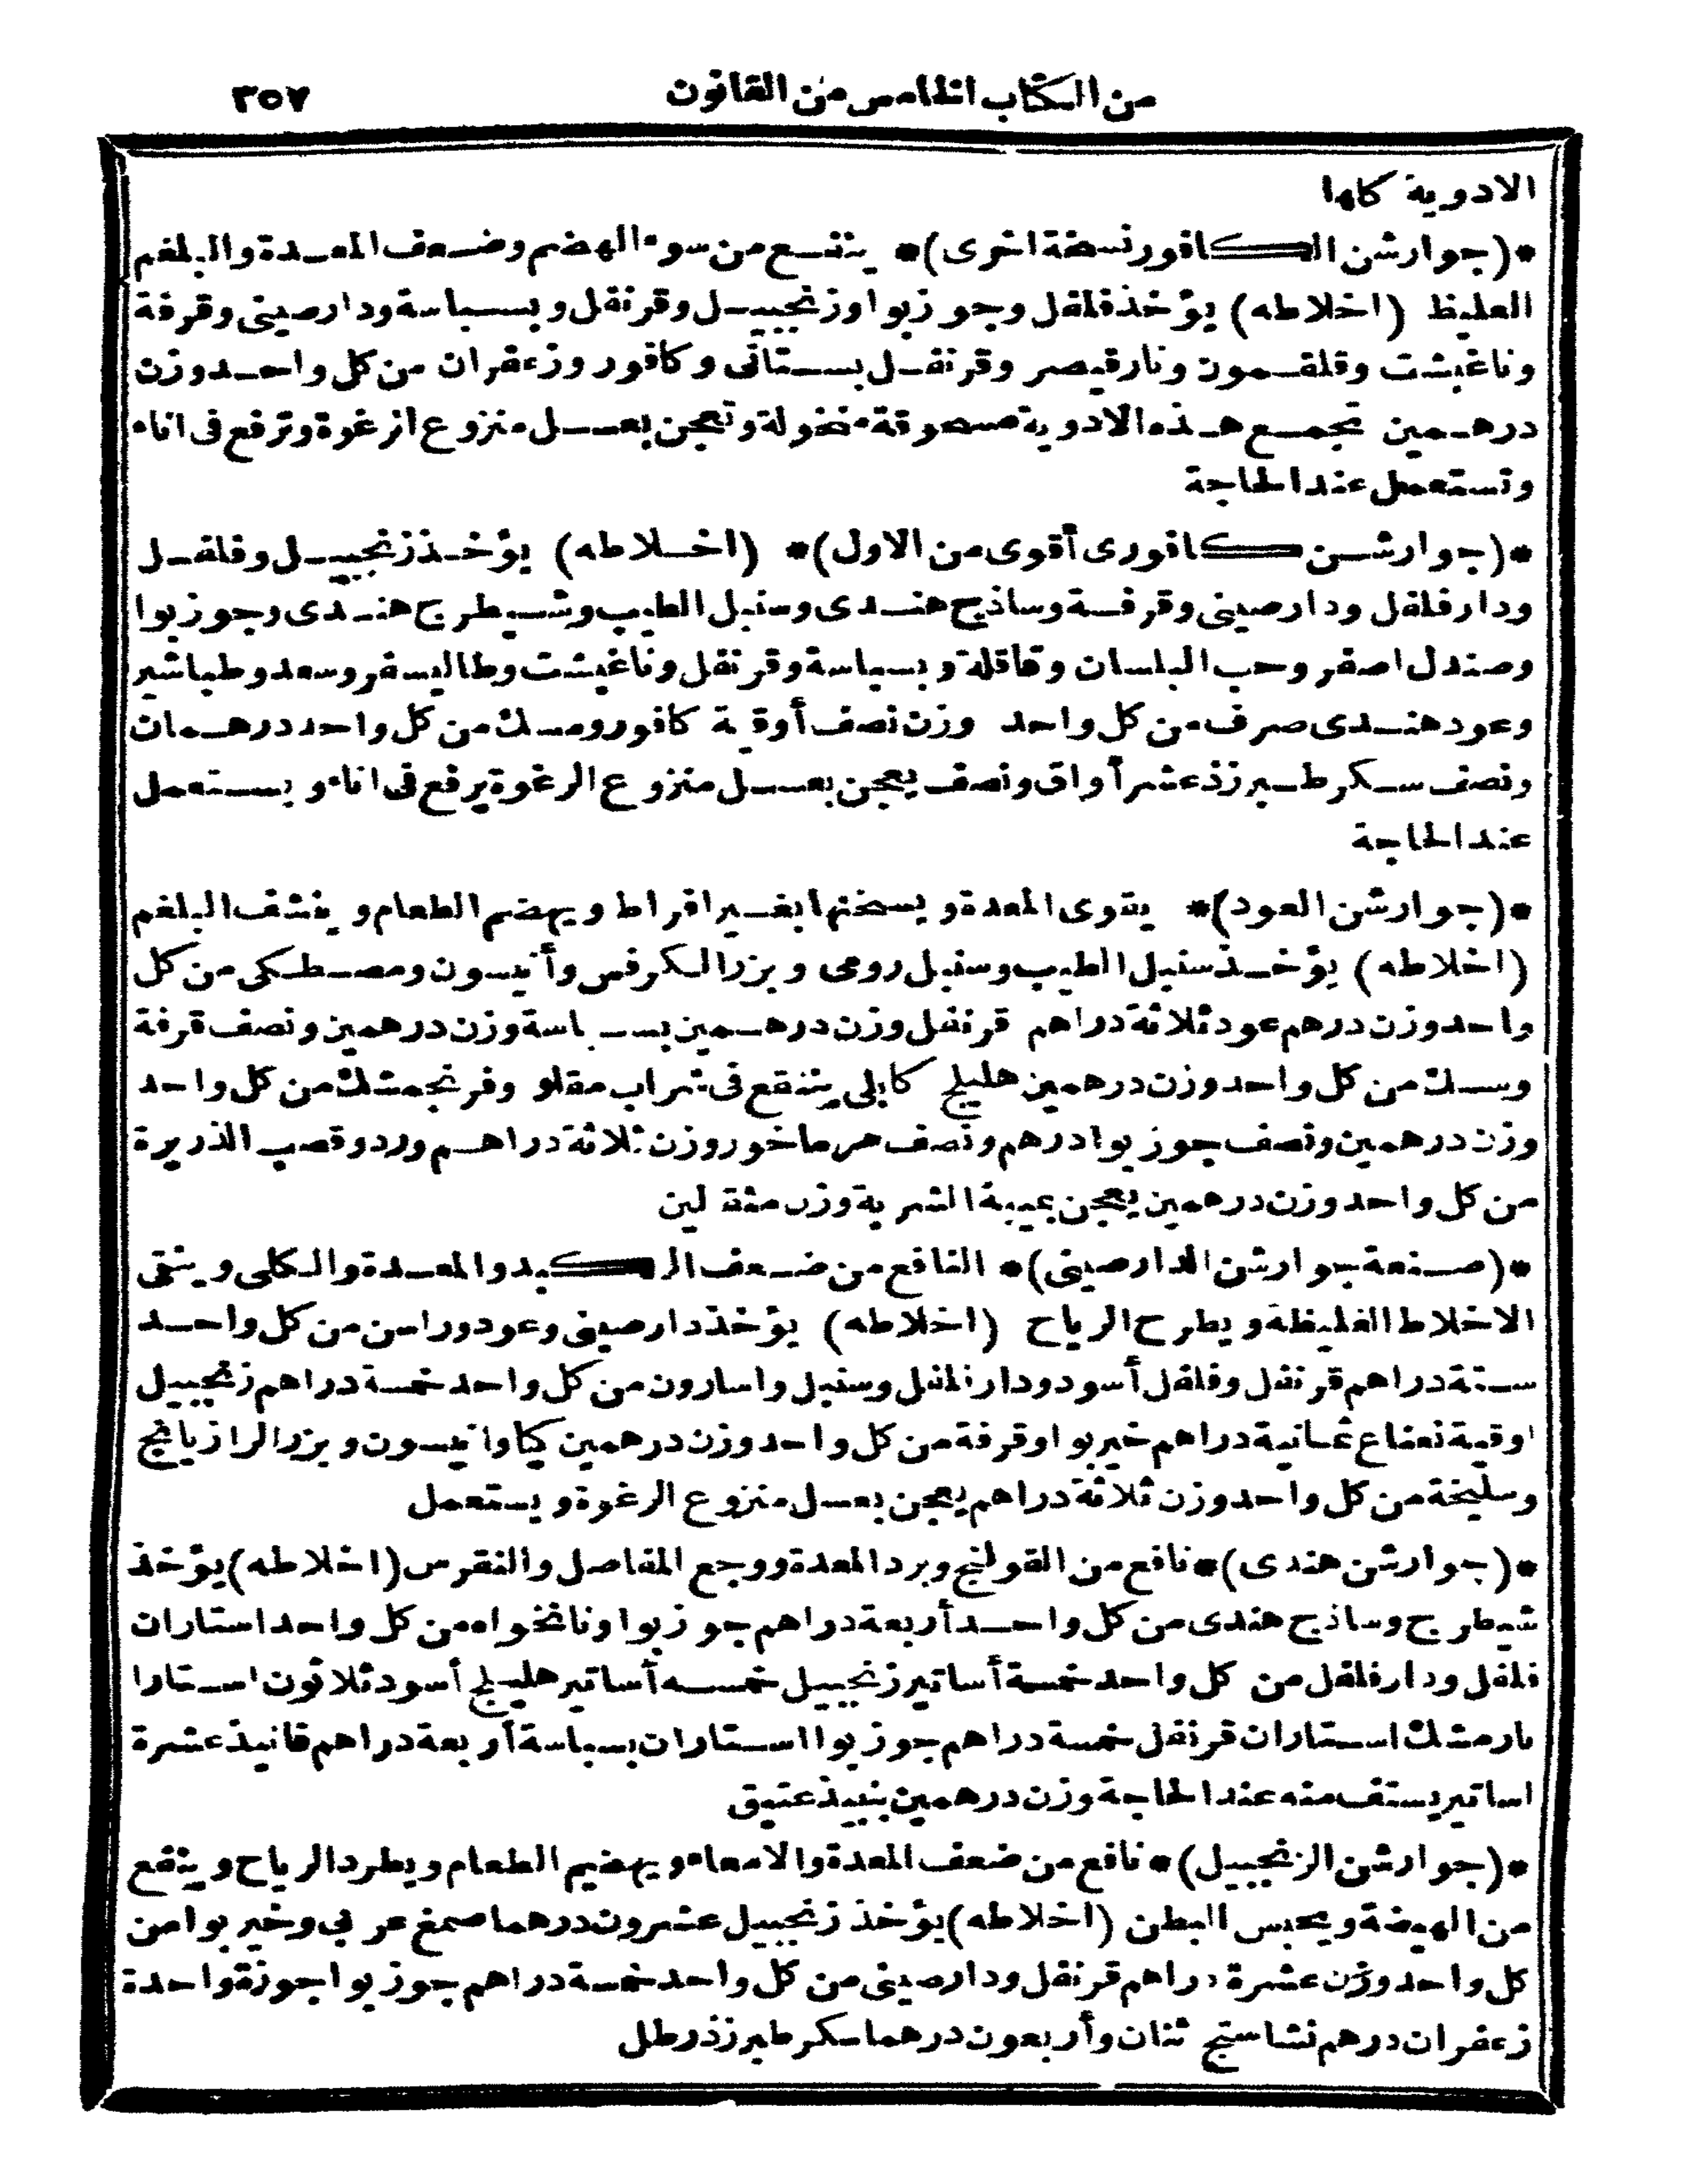 من الكتاب الخامس من القانون ٣٥٧
الادوية كلها
*(جوارشن الكافور نسخة اخرى)* ينفع من سوء الهضم وضعف المعدة والبلغم
الغليظ (اخلاطه) يؤخذ فلفل وجوزبوا وزنجبيل وقرنفل وبسباسة ودارصينى وقرفة
وناغبشت وقلقمون ونارقيصر وقرنفل بستانى وكافور وزعفران من كل واحد وزن
درهمين تجمع هذه الادوية مسحوقة منخولة وتعجن بعسل منزوع الرغوة وترفع فى اناء
وتستعمل عند الحاجة
*(جوارشن كافورى أقوى من الاول)* (اخلاطه) يؤخذ زنجبيل وفلفل
ودارفلفل ودارصينى وقرفة وساذج هندى وسنبل الطيب وشيطرج هندى وجوزبوا
وصندل اصفر وحب البلسان وقاقلة وبسباسة وقرنفل وناغبشت وطاليسفر وسعد وطباشير
وعود هندى صرف من كل واحد وزن نصف أوقية كافور ومسك من كل واحد درهمان
ونصف سكر طبرزذ عشر أواق ونصف يعجن بعسل منزوع الرغوة يرفع فى اناء ويستعمل
عند الحاجة
*(جوارشن العود)* يقوى المعدة ويسخنها بغير افراط ويهضم الطعام وينشف البلغم
(اخلاطه) يؤخذ سنبل الطيب وسنبل رومى وبزر الكرفس وأنيسون ومصطكى من كل
واحد وزن درهم عود ثلاثة دراهم قرنفل وزن درهمين بسباسة وزن درهمين ونصف قرفة
وسك من كل واحد وزن درهمين هليلج كابلى ينقع فى شراب مقلو وفرنجمشك من كل واحد
وزن درهمين ونصف جوزبوا درهم ونصف مرماخور وزن ثلاثة دراهم ورد وقصب الذريرة
من كل واحد وزن درهمين يعجن بميبة الشربة وزن مثقالين
*(صنعة جوارشن الدارصينى)* النافع من ضعف الكبد والمعدة والكلى وينقى
الاخلاط الغليظة ويطرح الرياح (اخلاطه) يؤخذ دارصينى وعود وراسن من كل واحد
ستة دراهم قرنفل وفلفل أسود ودارفلفل وسنبل واسارون من كل واحد خمسة دراهم زنجبيل
اوقية نعناع ثمانية دراهم خيربوا وقرفة من كل واحد وزن درهمين كياوانيسون وبزر الرازيانج
وسليخة من كل واحد وزن ثلاثة دراهم يعجن بعسل منزوع الرغوة ويستعمل
*(جوارشن هندى)* نافع من القولنج وبرد المعدة ووجع المفاصل والنقرس (اخلاطه) يؤخذ
شيطرج وساذج هندى من كل واحد أربعة دراهم جوزبوا ونانخواه من كل واحد استاران
فلفل ودارفلفل من كل واحد خمسة أساتير زنجبيل خمسه أساتير هليلج أسود ثلاثون استارا
نارمشك استاران قرنفل خمسة دراهم جوزبوا استاران بسباسة أربعة دراهم فانيذ عشرة
اساتير يستف منه عند الحاجة وزن درهمين بنبيذ عتيق
*(جوارشن الزنجبيل)* نافع من ضعف المعدة والامعاء ويهضم الطعام ويطرد الرياح وينفع
من الهيضة ويحبس البطن (اخلاطه) يؤخذ زنجبيل عشرون درهما صمغ عربي وخيربوا من
كل واحد وزن عشرة دراهم قرنفل ودارصينى من كل واحد خمسة دراهم جوزبوا جوزة واحدة
زعفران درهم نشاستج ثنان وأربعون درهما سكر طبرزذ رطل